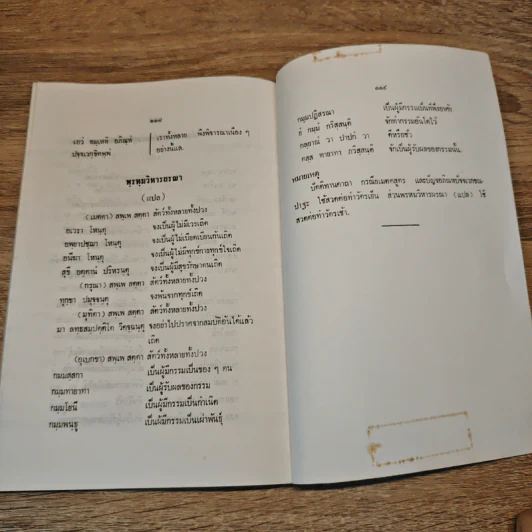 ๑๑๘
เอวํ อมฺเหหิ อภิณฺหํ เราทั้งหลาย พึงพิจารณาเนือง ๆ
ปจฺจเวกฺขิตพฺพํ อย่างนี้แล.
พฺรหฺมวิหารผรณา
(แปล)
(เมตตา) สพฺเพ สตฺตา สัตว์ทั้งหลายทั้งปวง
อเวรา โหนฺตุ จงเป็นผู้ไม่มีเวรเถิด
อพฺยาปชฺฌา โหนฺตุ จงเป็นผู้ไม่เบียดเบียนกันเถิด
อนีฆา โหนฺตุ จงเป็นผู้ไม่มีทุกข์กายทุกข์ใจเถิด
สุขี อตฺตานํ ปริหรนฺตุ จงเป็นผู้มีสุขรักษาตนเถิด
(กรุณา) สพฺเพ สตฺตา สัตว์ทั้งหลายทั้งปวง
ทุกฺขา ปมุจฺจนฺตุ จงพ้นจากทุกข์เถิด
(มุทิตา) สพฺเพ สตฺตา สัตว์ทั้งหลายทั้งปวง
มา ลทฺธสมฺปตฺติโต วิคจฺฉนฺตุ จงอย่าไปปราศจากสมบัติอันได้แล้ว
เถิด
(อุเบกขา) สพฺเพ สตฺตา สัตว์ทั้งหลายทั้งปวง
กมฺมสฺสกา เป็นผู้มีกรรมเป็นของ ๆ ตน
กมฺมทายาทา เป็นผู้รับผลของกรรม
กมฺมโยนิ เป็นผู้มีกรรมเป็นกำเนิด
กมฺมพนฺธู เป็นผู้มีกรรมเป็นเผ่าพันธุ์
๑๑๙
กมฺมปฏิสรณา เป็นผู้มีกรรมเป็นที่พึ่งอาศัย
ยํ กมฺมํ กริสฺสนฺติ จักทำกรรมอันใดไว้
กลฺยาณํ วา ปาปกํ วา ดีหรือชั่ว
ตสฺส ทายาทา ภวิสฺสนฺติ จักเป็นผู้รับผลของกรรมนั้น.
หมายเหตุ
ปัตติทานคาถา กรณียเมตตสูตร และ
ปาฐะ ใช้สวดต่อทำวัตรเย็น ส่วนพรหมวิหารผรณา (แปล) ใช้
สวดต่อทำวัตรเช้า.